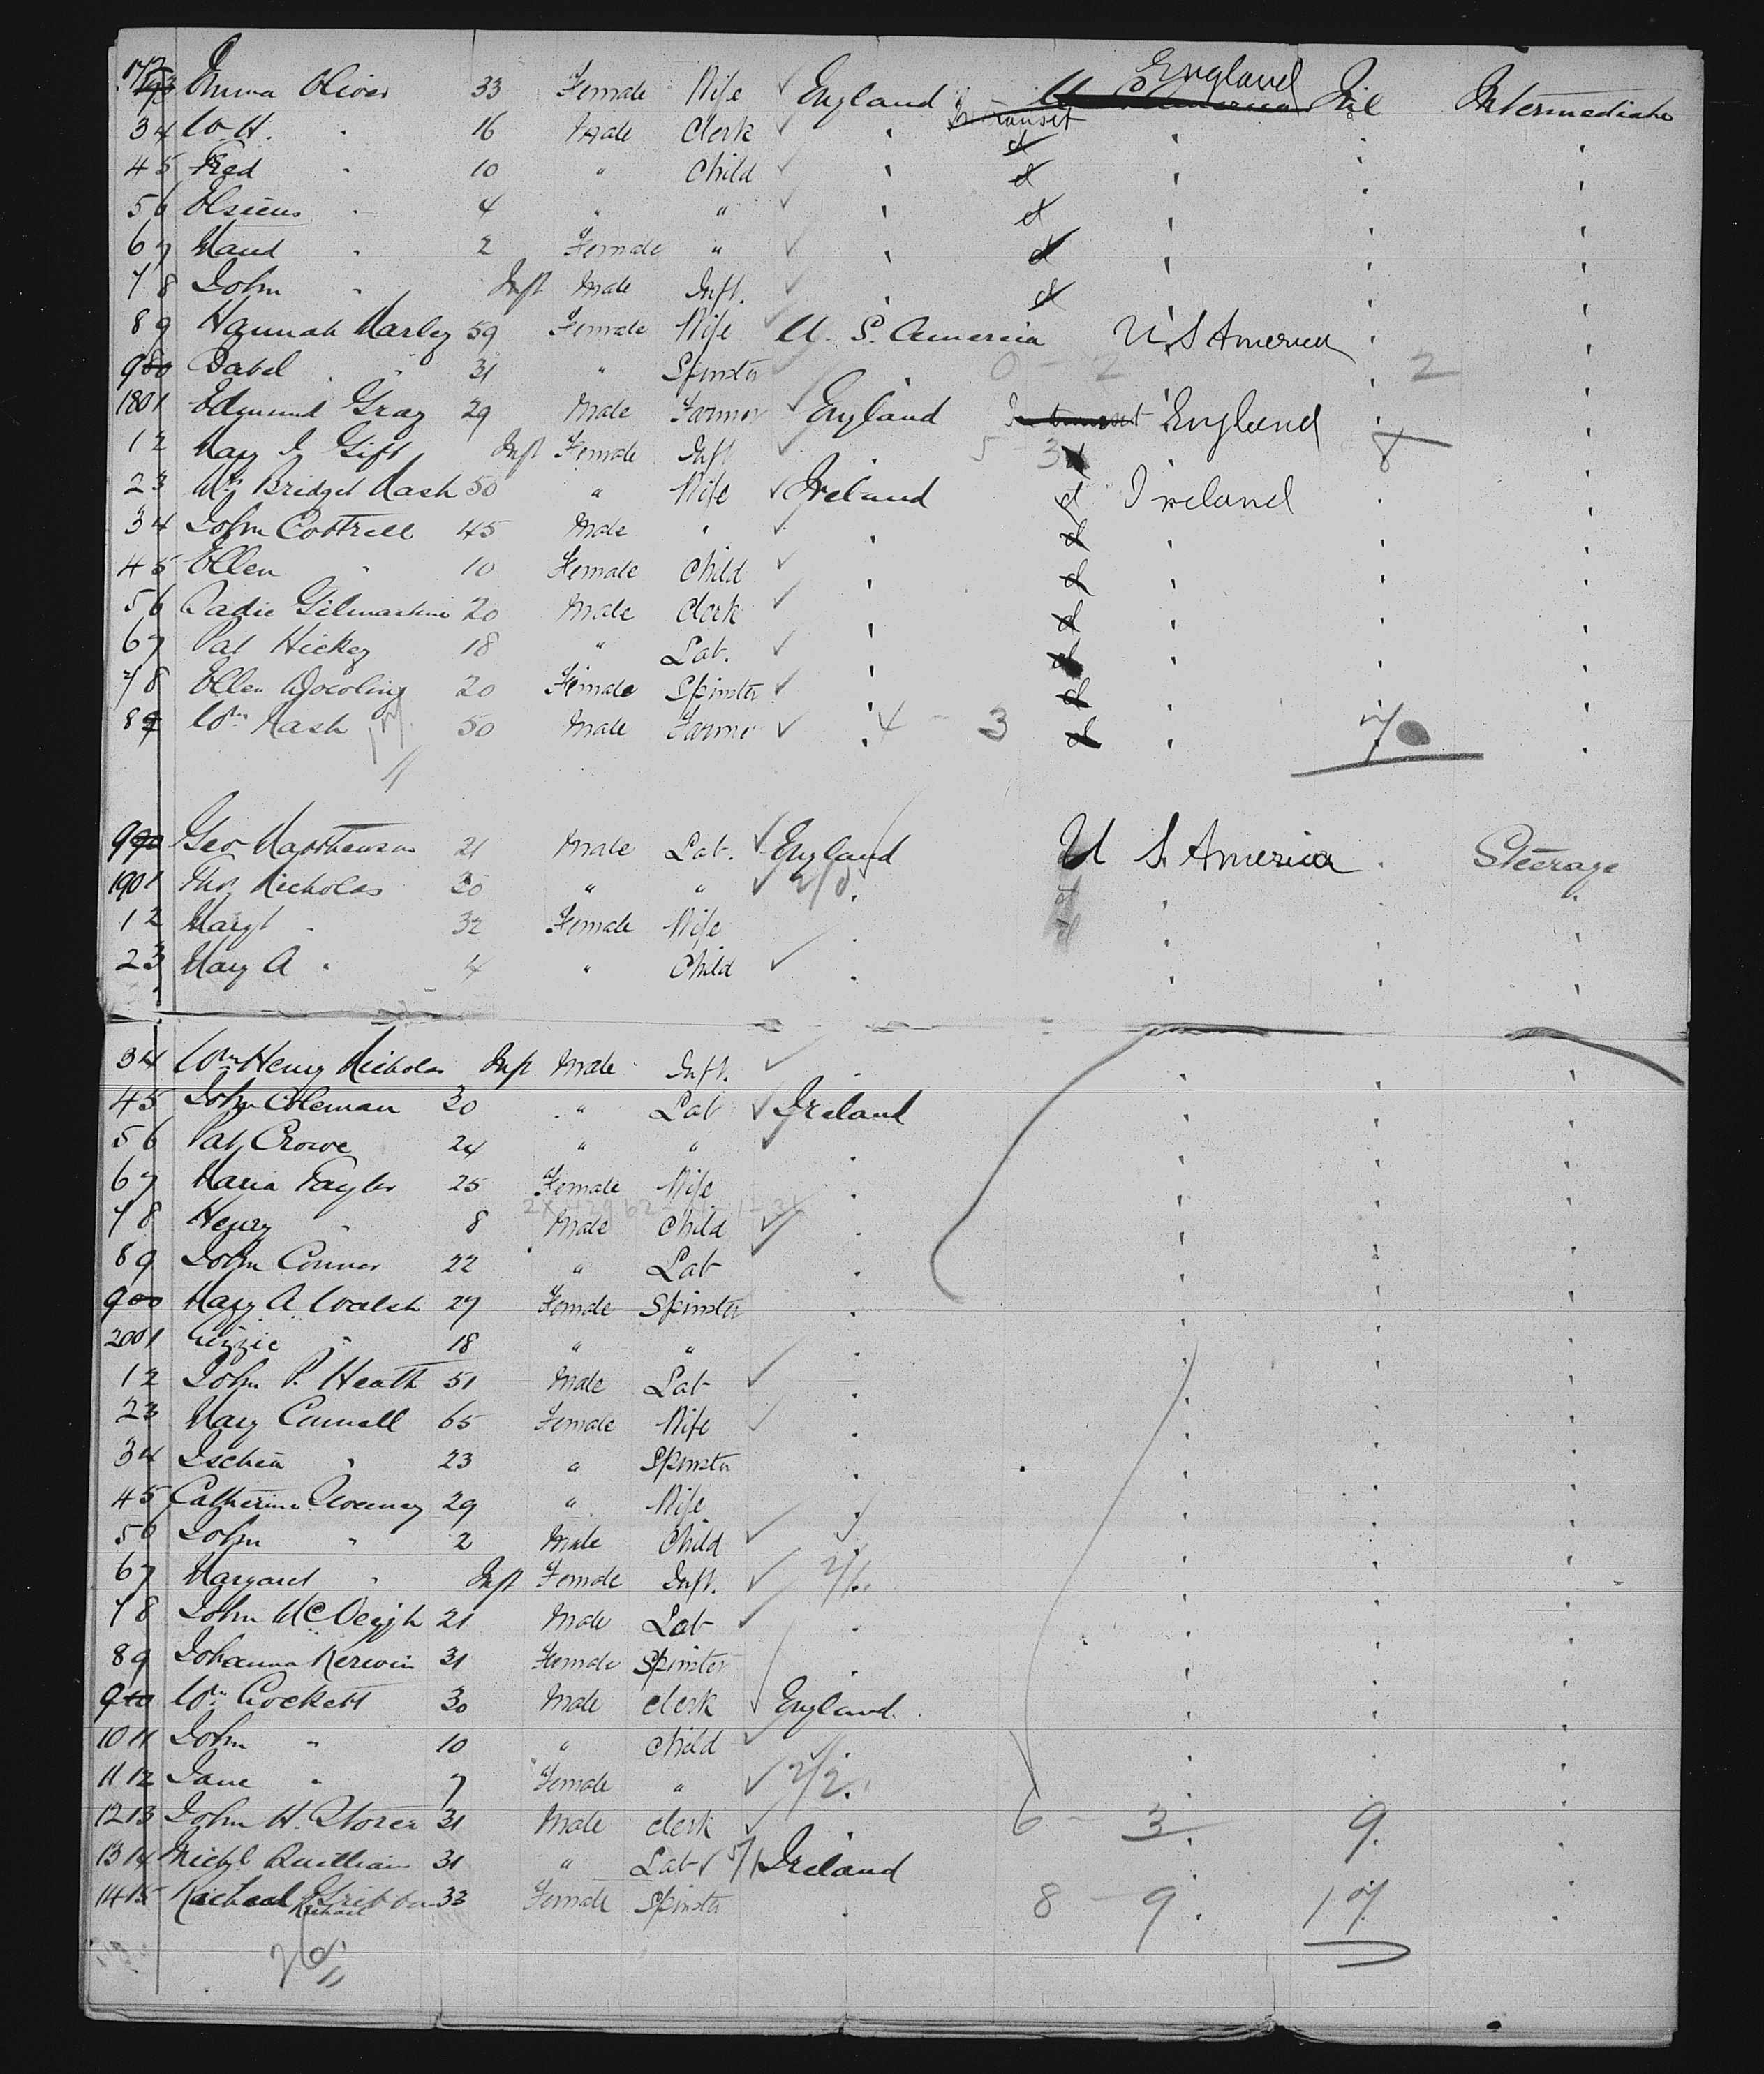 England
Emma Oliver 33 Female Wife ✓ England U S America Nil Intermediate
In transit
34 W. H. " 16 Male Clerk ✓ " d " " "
45 Fred " 10 " Child ✓ " d " " "
56 " 4 " " ✓ " d " " "
67 Maud " 2 Female " ✓ " d " " "
78 John " Inft Male Inft. ✓ " d " " "
89 Hannah Marley 59 Female Wife ✓ U. S. America U. S America " "
980 " 31 " Spinster ✓ 0 - 2 2 "
1801 Edmund Gray 29 Male Farmer ✓ England In transit England " "
12 Mary J Gift Inft Female Inft ✓ 5 3 d 8 "
23 Mrs Bridget Nash 50 " Wife ✓ Ireland d Ireland " "
34 John Cottrell 45 Male " ✓ " d " " "
45 Ellen " 10 Female Child ✓ " d " " "
56 Gilmartin 20 Male Clerk ✓ " d " " "
67 Pat Hickey 18 " Lab. ✓ " d " " "
78 Ellen 20 Female Spinster ✓ " d " " "
89 Wm Nash 50 Male Farmer ✓ " 4 - 3 d " 7 "
17
990 Geo 21 Male Lab. ✓ England U S. America " Steerage
1901 Thos Nicholas 30 " " ✓ 2/0 " d " " "
12 Margt " 32 Female Wife " d " " "
23 Mary A " 4 " Child ✓ " " " "
34 Wm Henry Nicholas Inft Male Inft. ✓ " " " "
45 John Coleman 20 " Lab ✓ Ireland " " "
56 Pat Crowe 24 " " ✓ " " " "
67 Maria Taylor 25 Female Wife " " " "
78 Henry " 8 Male Child ✓ " " " "
89 John Connor 22 " Lab " " " "
900 Mary A. Walsh 27 Female Spinster " " " "
2001 Lizzie " 18 " " " " " "
12 John P. Heath 51 Male Lab ✓ " " " "
23 Mary Connell 65 Female Wife ✓ " " " "
34 " 23 " Spinster " " " "
45 Catherine 29 " Wife " " " "
56 John " 2 Male Child ✓ " " " "
67 Margaret " Inft Female Inft. ✓ 2/1 " " " "
78 John McVeigh 21 Male Lab ✓ " " " "
89 Johanna Kerwin 31 Female Spinster " " " "
910 Wm Crockett 30 Male Clerk ✓ England " " "
1011 John " 10 " Child ✓ " " " "
1112 Jane " 7 Female " ✓ 2/2 " " " "
1213 John H. Storer 31 Male Clerk ✓ " 6 - 3 9 "
1314 Michl Quillian 31 " Lab ✓ 5/1 Ireland " " "
1415 Racheal Gribbon 33 Female Spinster " 8 - 9 17 "
Rachael
26